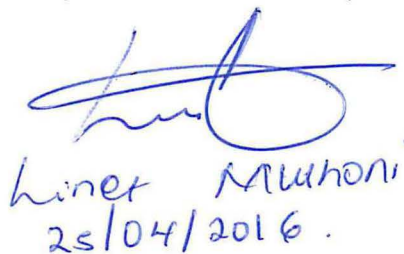 Linet Muthoni
25/04/2016.